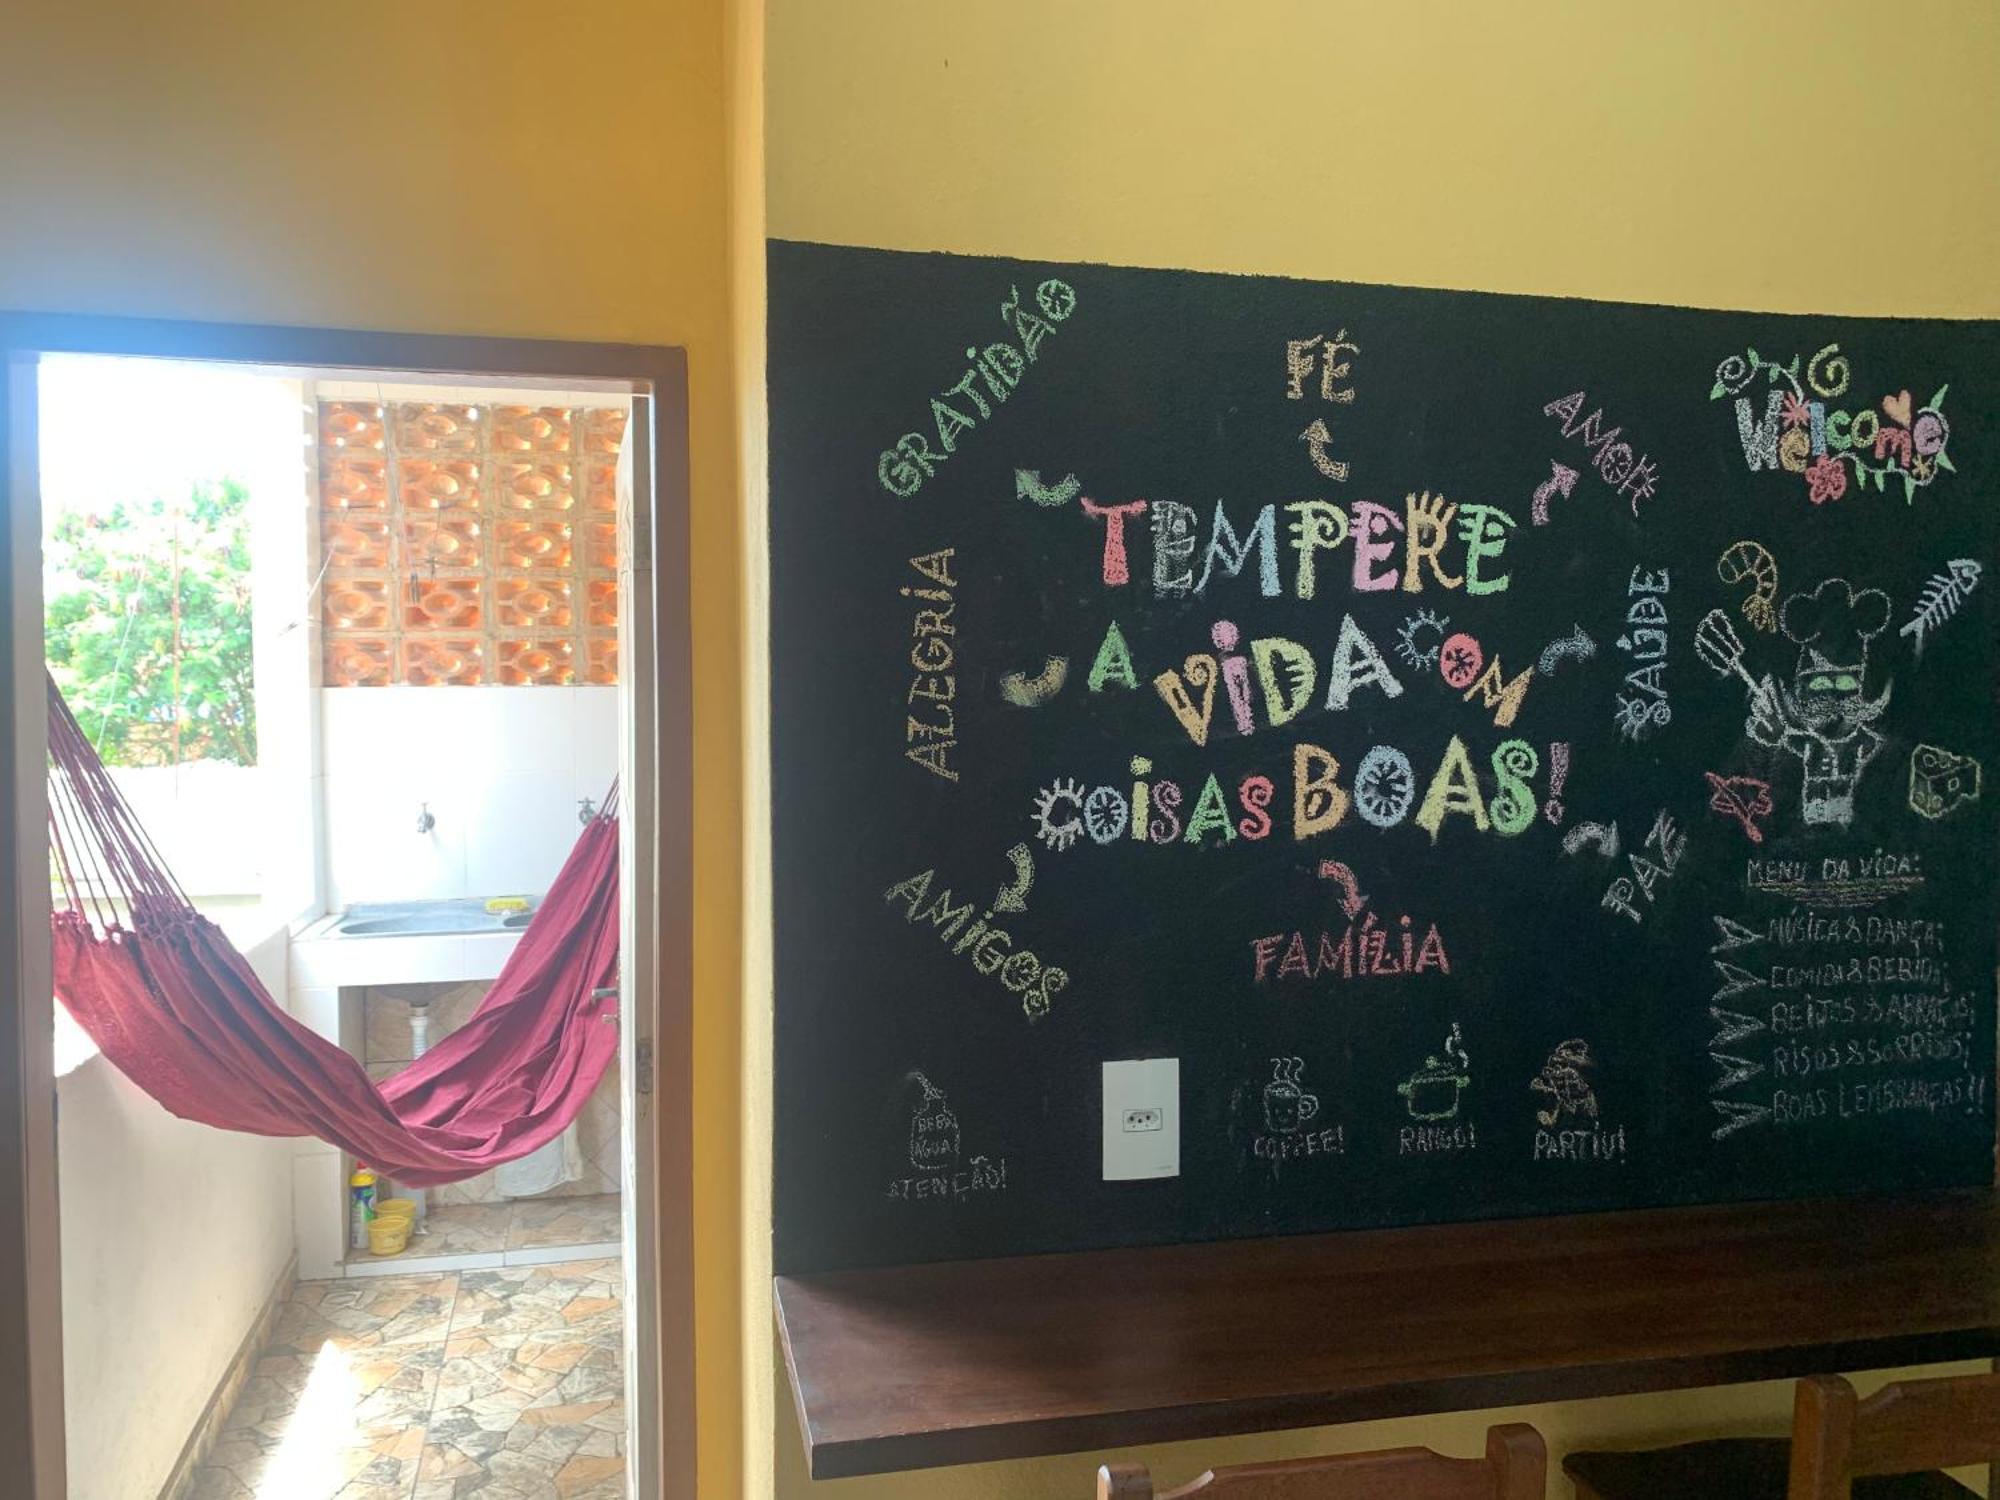 GRATIDÃO
FÉ
AMOR
Welcome
TEMPERE
A VIDA COM
COISAS BOAS!
ALEGRIA
SAÚDE
AMIGOS
FAMÍLIA
PAZ
MENU DA VIDA:
MÚSICA & DANÇA;
COMIDA & BEBIDA;
BEIJOS & ABRAÇOS;
RISOS & SORRISOS;
BOAS LEMBRANÇAS!!
BEBA
ÁGUA
ATENÇÃO!
COFFEE!
RANGO!
PARTIU!